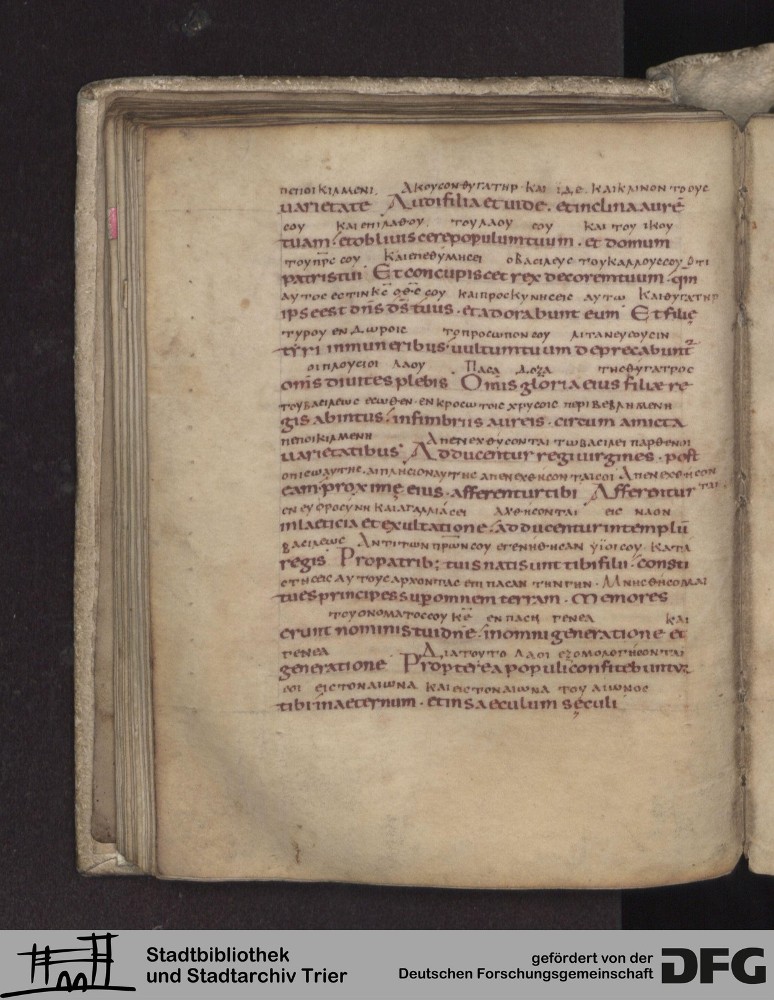 ΠΕΠΟΙΚΙΛΜΕΝΙ. ΑΚΟΥCΟΝ ΘΥΓΑΤΗΡ ΚΑΙ ΙΔΕ. ΚΑΙ ΚΛΙΝΟΝ ΤΟ ΟΥC
uarietate Audi filia et uide. et inclina aurē
CΟΥ ΚΑΙ ΕΠΙΛΑΘΟΥ ΤΟΥ ΛΑΟΥ CΟΥ ΚΑΙ ΤΟΥ ΙΚΟΥ
tuam. et obliuiscere populum tuum. et domum
ΤΟΥ ΠΡC CΟΥ ΚΑΙ ΕΠΕΘΥΜΗCΕΙ Ο ΒΑCΙΛΕΥC ΤΟΥ ΚΑΛΛΟΥC CΟΥ ΟΤΙ
patris tui Et concupiscet rex decorem tuum. qm̄
ΑΥΤΟC ΕCΤΙΝ Κ̅C̅ Ο Θ̅C̅ CΟΥ ΚΑΙ ΠΡΟCΚΥΝΗCΕΙC ΑΥΤΩ ΚΑΙ ΘΥΓΑΤΗΡ
ipse est dn̄s d̄s tuus. et adorabunt eum Et filię
ΤΥΡΟΥ ΕΝ ΔΩΡΟΙC ΤΟ ΠΡΟCΩΠΟΝ CΟΥ ΛΙΤΑΝΕΥCΟΥCΙΝ
tyri in muneribus. uultum tuum deprecabunt
ΟΙ ΠΛΟΥCΙΟΙ ΛΑΟΥ ΠΑCΑ ΔΟΞΑ ΤΗC ΘΥΓΑΤΡΟC
om̄s diuites plebis Omis gloria eius filiæ re
ΤΟΥ ΒΑCΙΛΕΩC ΕCΩΘΕΝ. ΕΝ ΚΡΟCΩΤΟΙC ΧΡΥCΟΙC ΠΕΡΙΒΕΒΛΗΜΕΝΗ
gis abintus. in fimbriis aureis. circum amicta
ΠΕΠΟΙΚΙΛΜΕΝΗ ΑΠΕΝΕΧΘΥCΟΝΤΑΙ ΤΩ ΒΑCΙΛΕΙ ΠΑΡΘΕΝΟΙ
uarietatibus Adducentur regi uirgines. post
ΟΠΙCΩ ΑΥΤΗC. ΑΙ ΠΛΗCΙΟΝ ΑΥΤΗC ΑΠΕΝΕΧΘΗCΟΝΤΑΙ CΟΙ ΑΠΕΝΕΧΘΗCΟΝ
eam. proximę eius. afferentur tibi Afferentur ΤΑΙ.
ΕΝ ΕΥΦΡΟCΥΝΗ ΚΑΙ ΑΓΑΛΛΙΑCΕΙ ΑΧΘΗCΟΝΤΑΙ ΕΙC ΝΑΟΝ
in laeticia et exultatione. adducentur in templū
ΒΑCΙΛΕΩC ΑΝΤΙ ΤΩΝ ΠΡΩΝ CΟΥ ΕΓΕΝΗΘΗCΑΝ ΥΙΟΙ CΟΥ ΚΑΤΑ
regis Pro patrib; tuis nati sunt tibi filii. consti
CΤΗCΕΙC ΑΥΤΟΥC ΑΡΧΟΝΤΑC ΕΠΙ ΠΑCΑΝ ΤΗΝ ΓΗΝ. ΜΝΗCΘΗCΟΜΑΙ
tues principes sup omnem terram. Memores
ΤΟΥ ΟΝΟΜΑΤΟC CΟΥ Κ̅Ε̅ ΕΝ ΠΑCΗ ΓΕΝΕΑ ΚΑΙ
erunt nominis tui dn̄e. in omni generatione et
ΓΕΝΕΑ ΔΙΑ ΤΟΥΤΟ ΛΑΟΙ ΕΞΟΜΟΛΟΓΗCΟΝΤΑΙ
generatione Propterea populi confitebuntur
CΟΙ ΕΙC ΤΟΝ ΑΙΩΝΑ ΚΑΙ ΕΙC ΤΟΝ ΑΙΩΝΑ ΤΟΥ ΑΙΩΝΟC
tibi in aeternum. et in saeculum sęculi
Stadtbibliothek
und Stadtarchiv Trier
gefördert von der
Deutschen Forschungsgemeinschaft
DFG